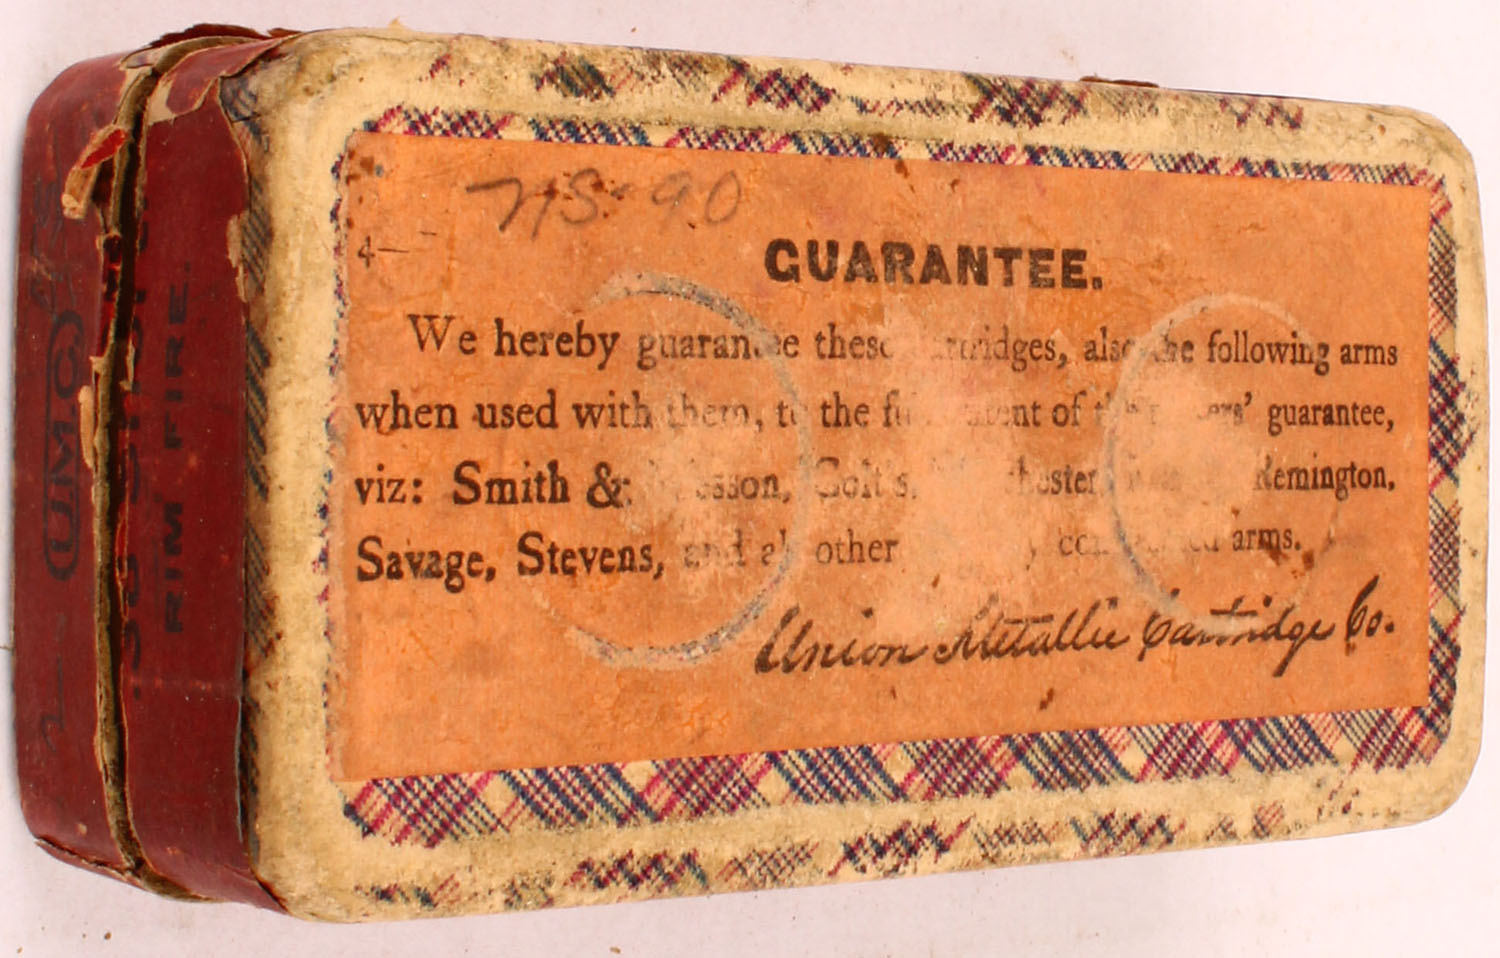 GUARANTEE.
4—
We hereby guarantee these cartridges, also the following arms
when used with them, to the full extent of the guarantee,
viz: Smith & Wesson, Colt's, Remington,
Savage, Stevens, and all other arms.
Union Metallic Cartridge Co.
U.M.C.
.38 SHORT
RIM FIRE.